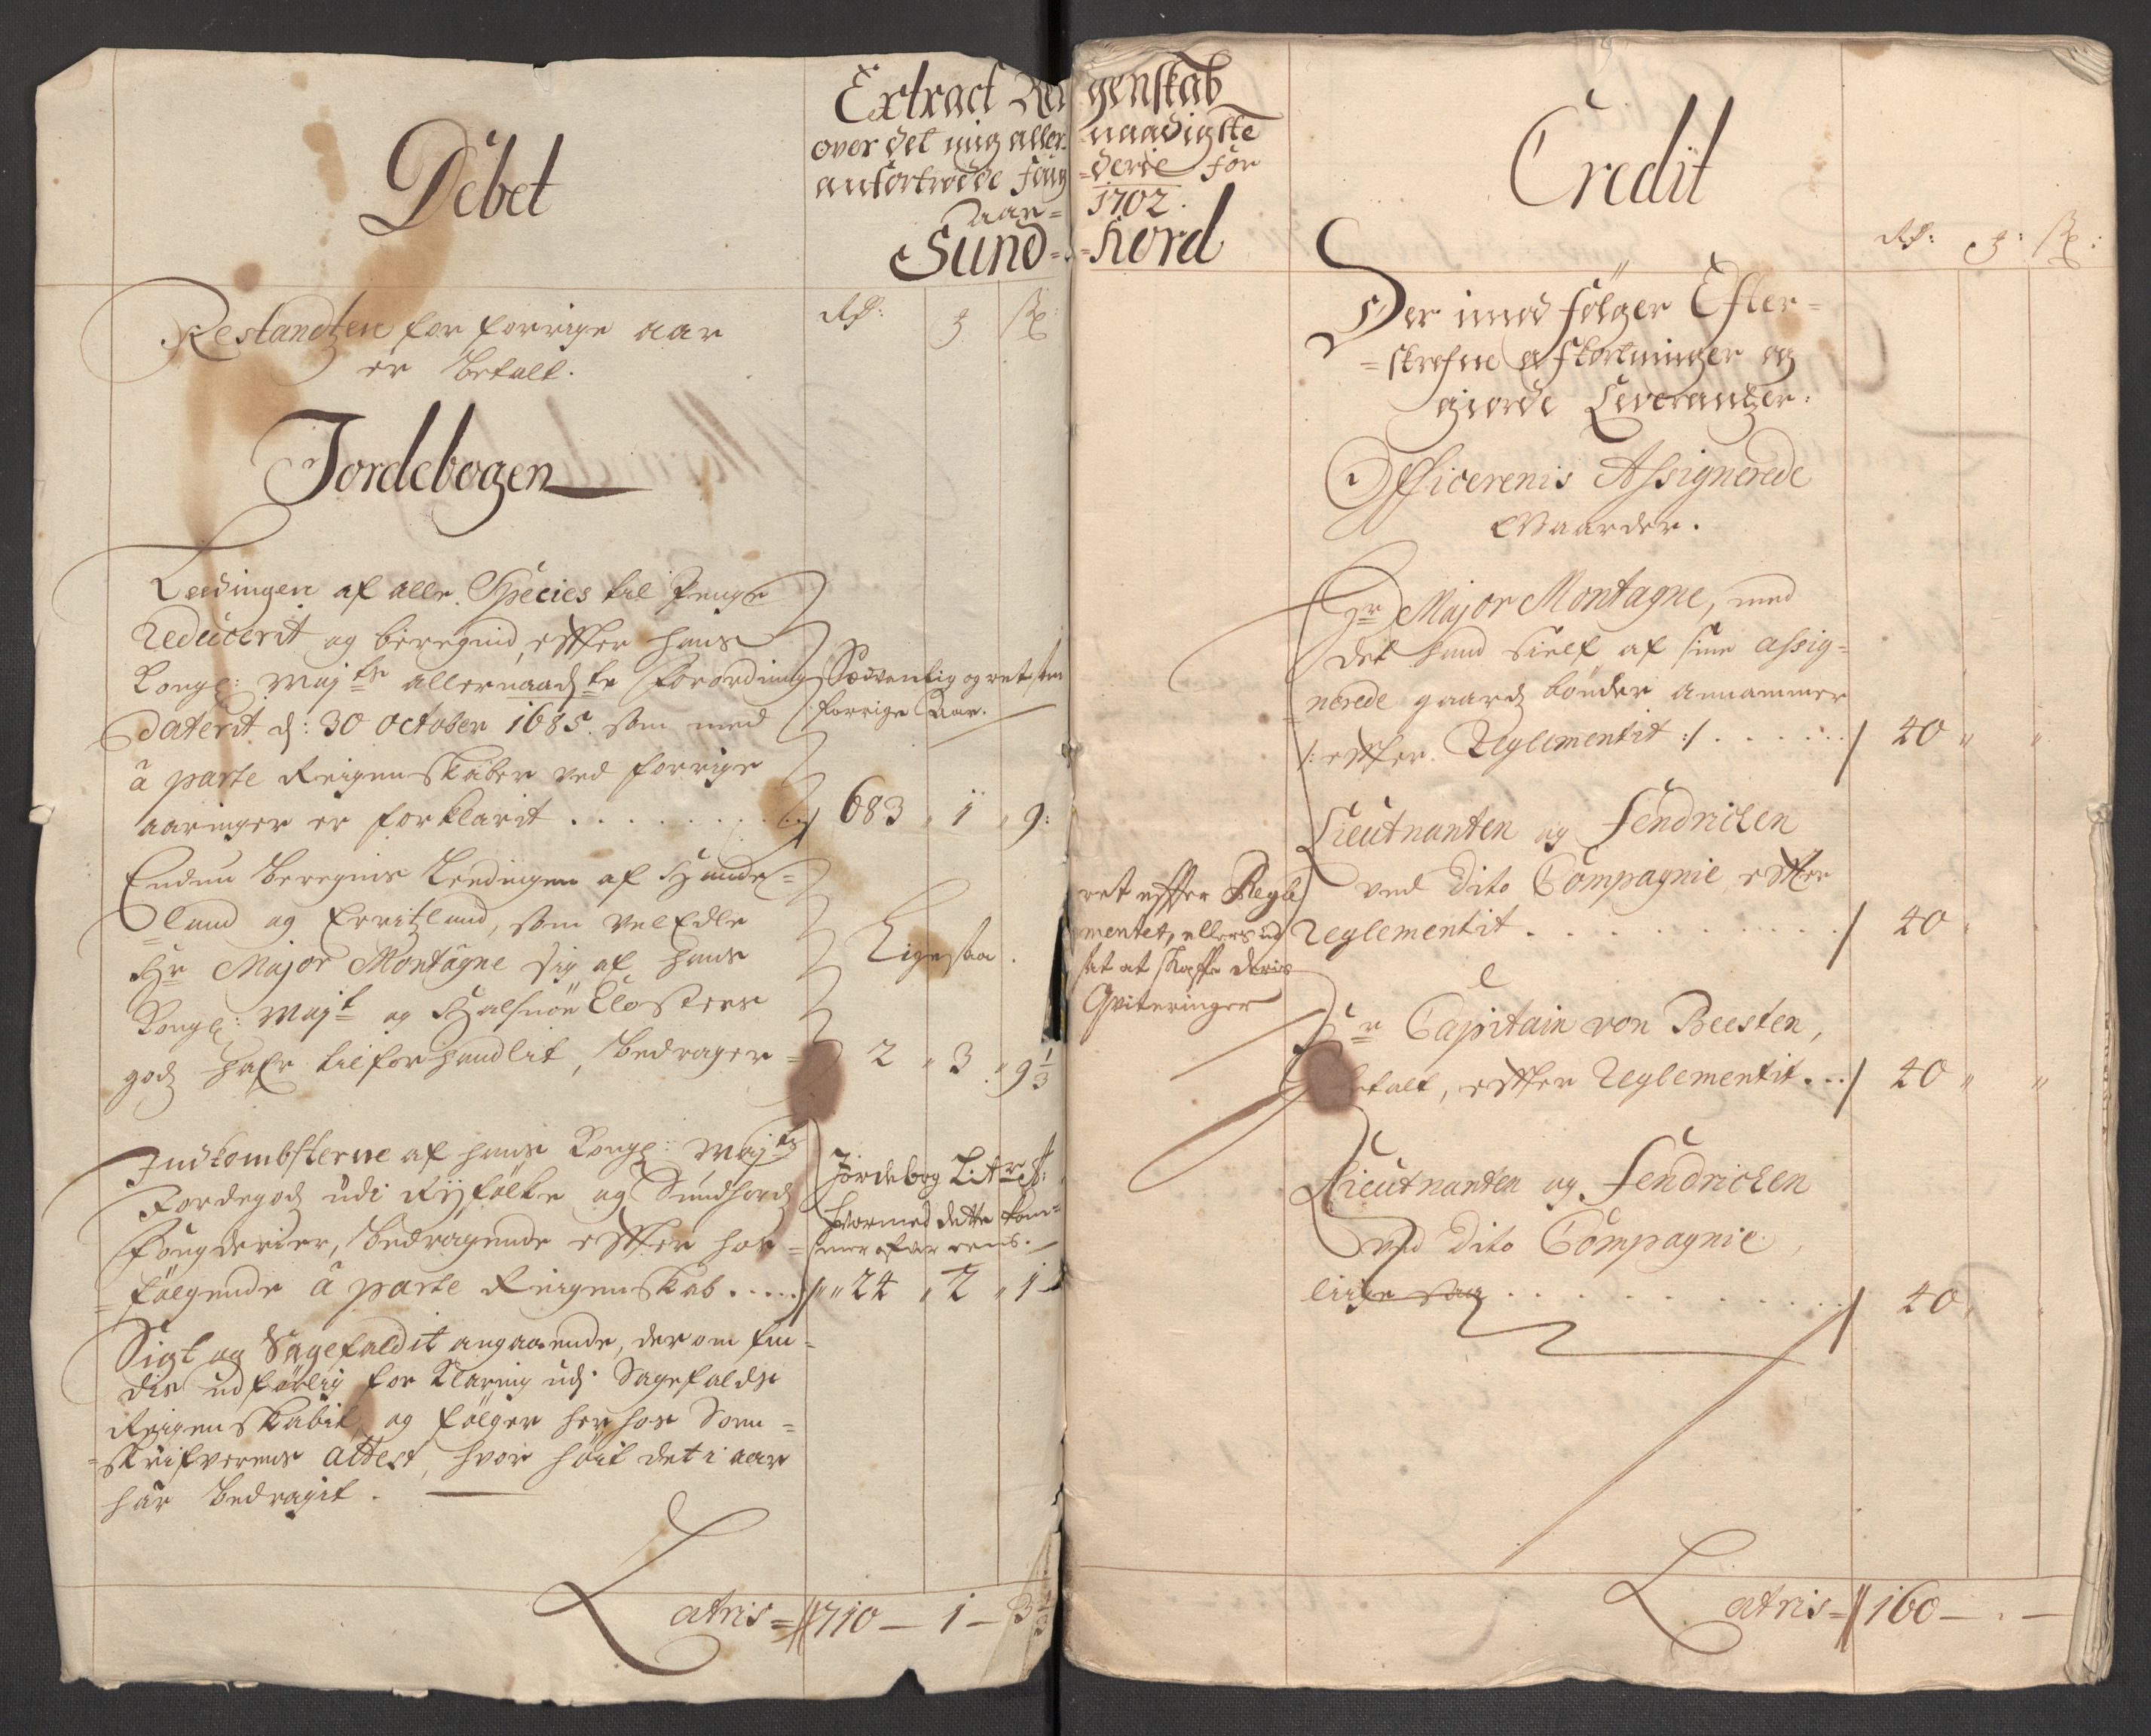 Debet
Extract Rei genskab
over det mig aller naadigste
anfortrodde foug=derie for
aar= 1702.
Sund= =Hord
Rd: ʒ ſk:
Restandtzen for forrige aar
er betalt.
Jordebogen
Leedingen af alle Species til Penge
Reducerit og beregnid, efter hans
Kongl: Maytz allernaadste forordning
daterit d: 30 October 1685. som med
à parte Reigenskaber ved forrige
aaringer er forklarit . . . . . . . . 683 " 1 " 9:
Rævenlig og ret som
forrige Aar.
Endnu beregnis Leedingen af Hunde=
=land og Erritzland, som velEdle
Hr Major Montagne sig af hans
Kongl: Mayt og Halsnöe Closters
godz hafr tilforhandlit, bedrager = 2 " 3 " 9 1/3
Ligesaa.
Indkombsterne af hans Kongl: Maytz
Jordegodz udi Ryfölke og Sundhord
fougderier, bedragende efter hos=
=fölgende à parte Reigenskab . . . . . " " 24 " 2 " 1
Jordebog Litr
hvormed dette kom=
mer ofver eens.
Sigt og Sagefaldit angaaende, der om fin=
dis udförlig for Klaring udj Sagefaldz
Reigenskabit, og fölger her hos Soren=
=skrifverens attest, hvor höit det i aar
har bedragit.
Latris = 710 — 1 — 3 1/3
Credit
Rd: ʒ: ſk:
Der imod fölger Efter=
=skrefne afkortninger og
giorde Leverantzer:
Officerenis Assignerede
Gaarder.
Hr Major Montagne, med
det hand sielf af sine assig=
=nerede gaardz bönder annammer
/: efter Reglementit :/ . . . . . . 40 " "
Lieutnanten og Fendricken
ved dito Compagnie, efter
Reglementit . . . . . . . . . . 40 "
ret efter Regle
mentet, ellers ud
sat at skaffe deris
Qviteringer
Hr Capitain von Beesten,
betalt, efter Reglementit . . . 40 " "
Lieutnanten og Fendricken
ved dito Compagnie,
liige saa . . . . . . . . . . 40 "
Latris = 160 — . —